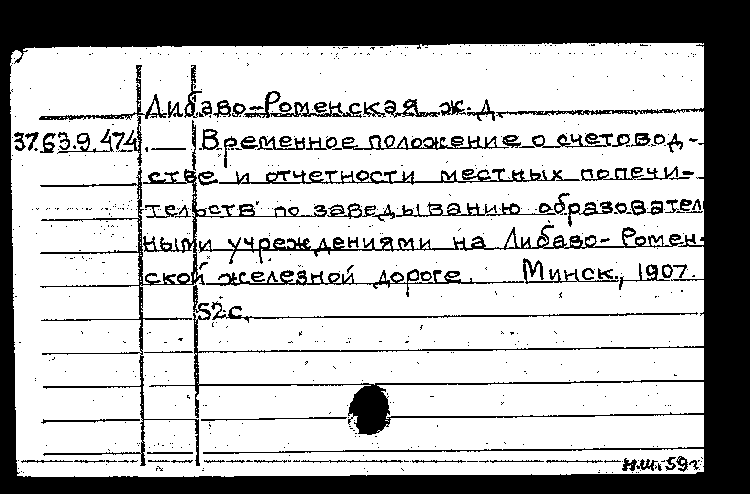 Либаво-Роменская ж.д.
37.63.9.474. Временное положение о счетовод-
стве и отчетности местных попечи-
тельств по заведыванию образователь
ными учреждениями на Либаво-Ромен-
ской железной дороге. Минск, 1907.
52с.
н.ш. 59г